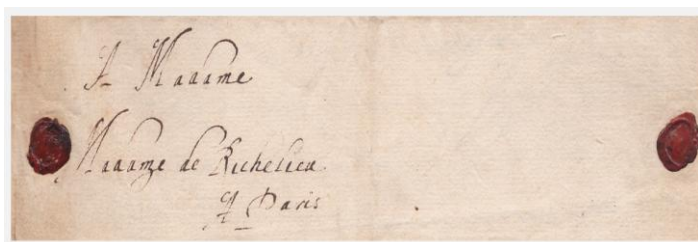 A Madame
Madame de Richelieu
A Paris